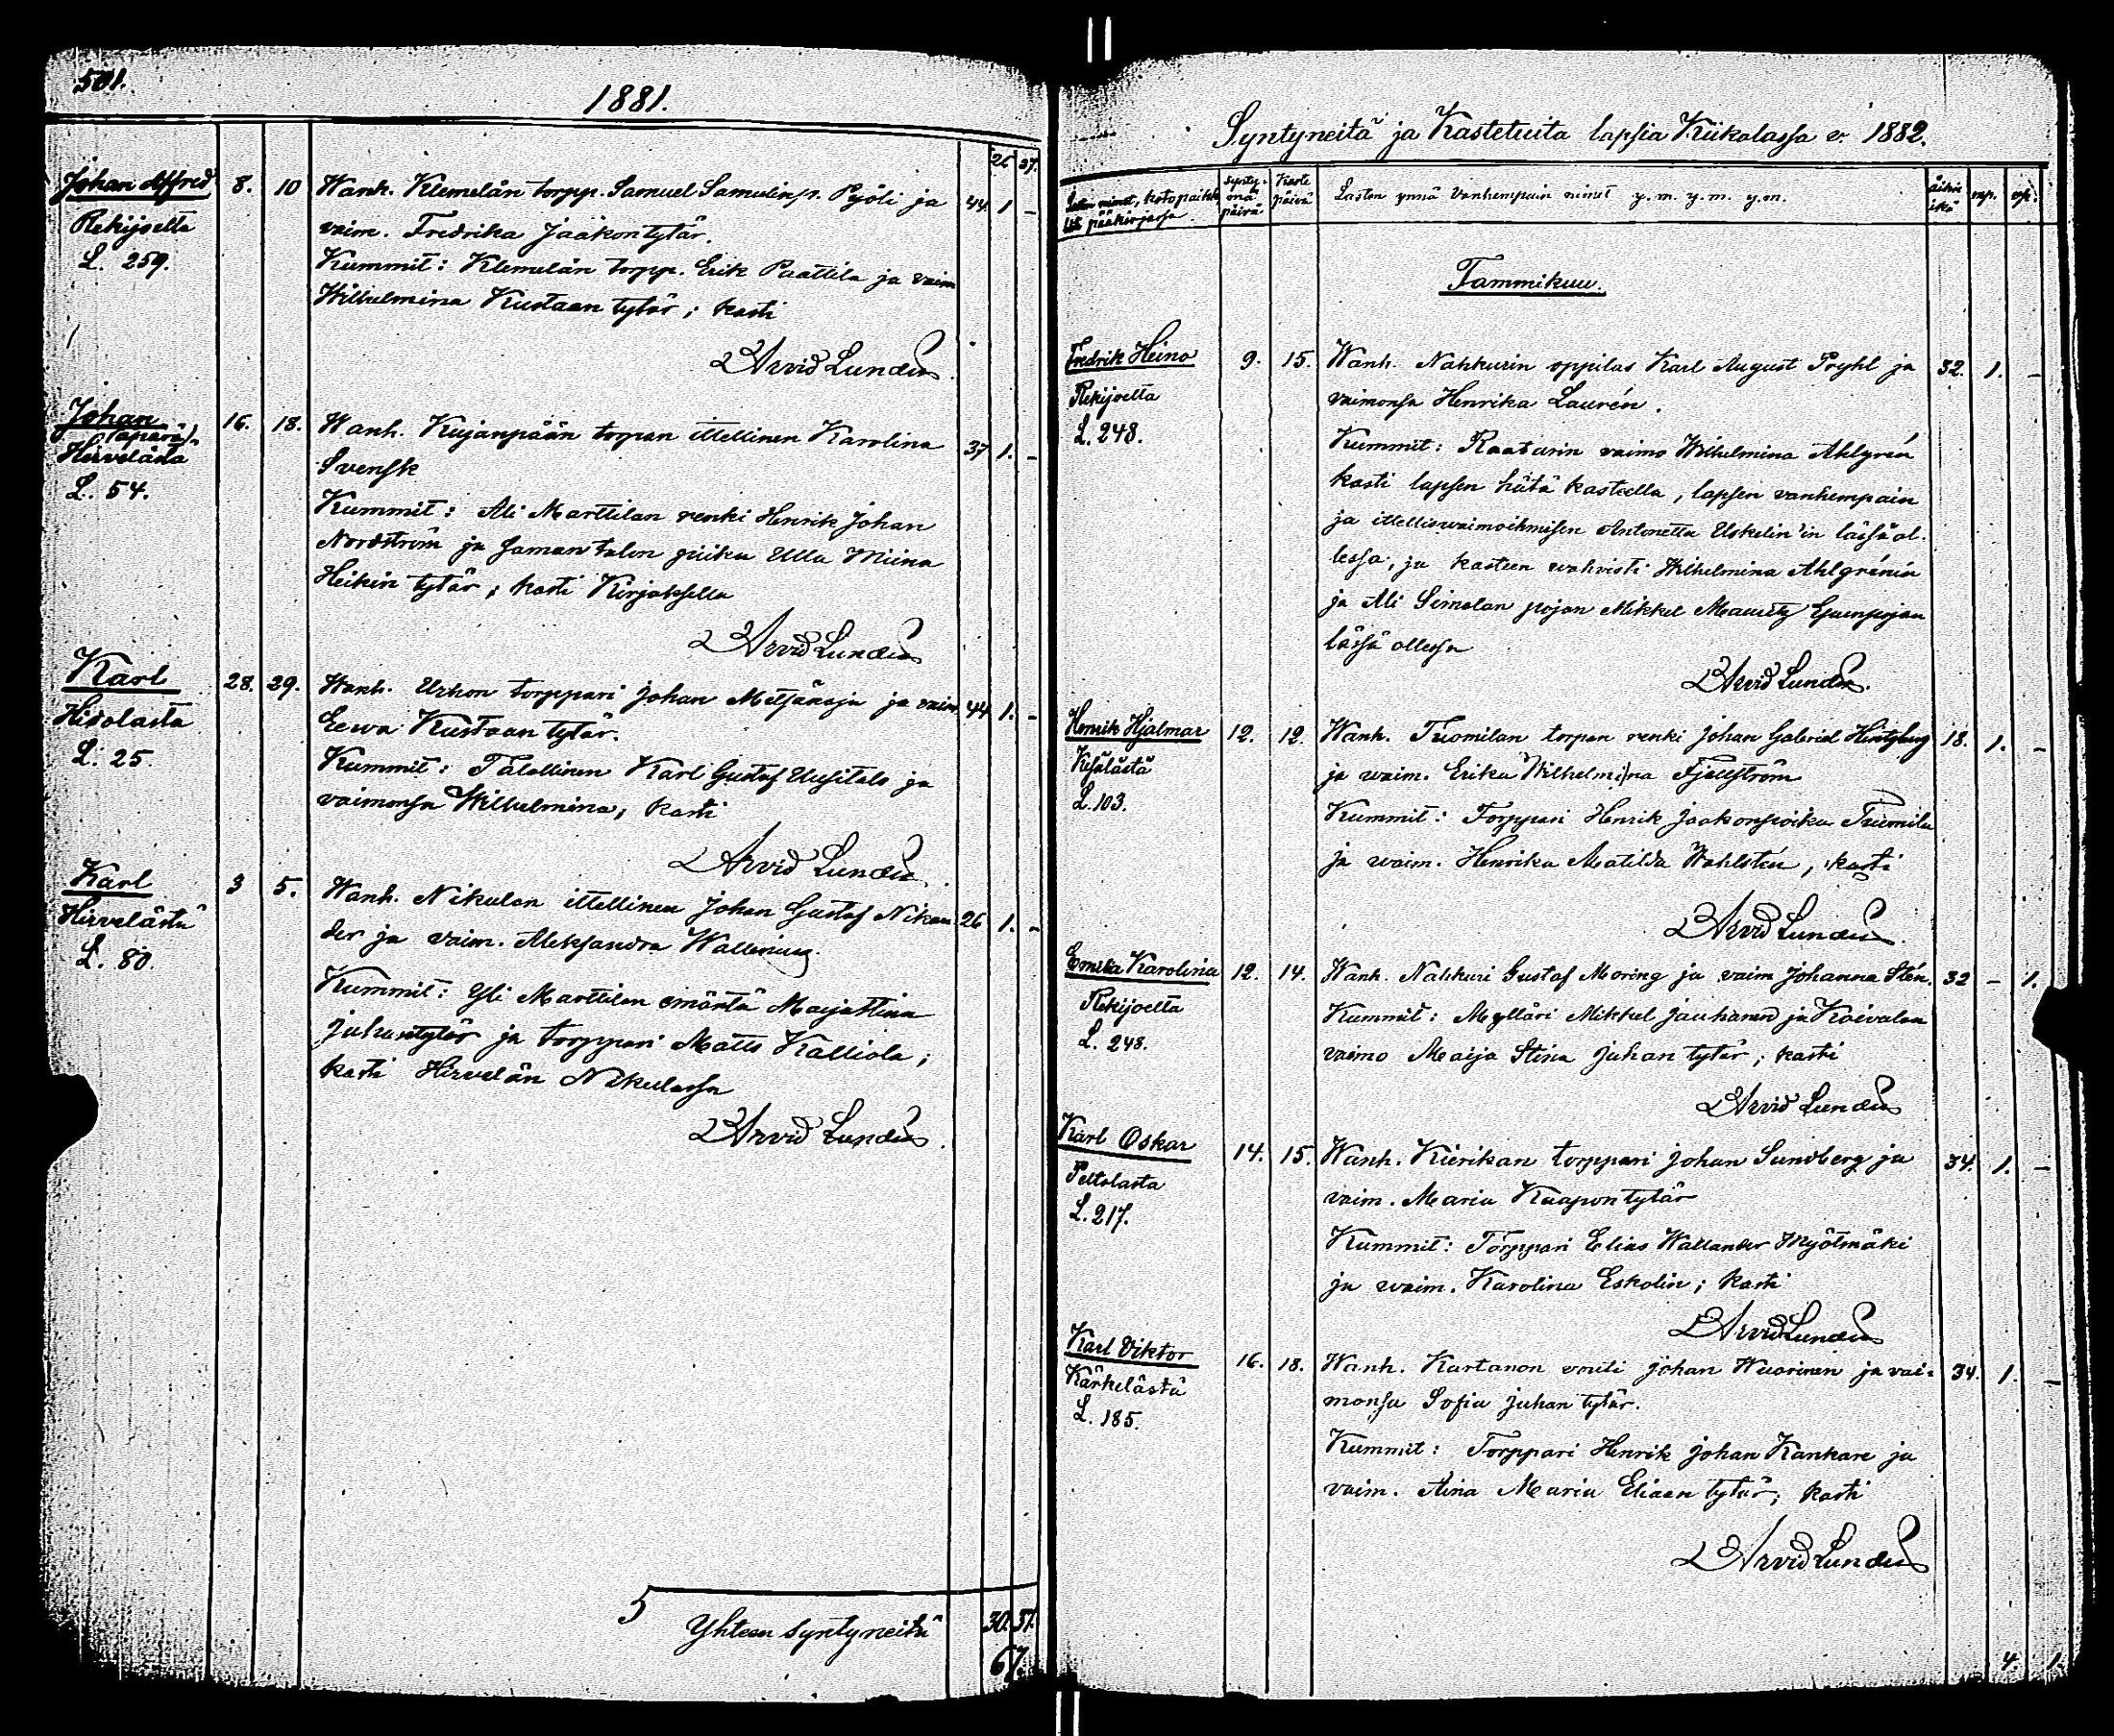 501.
1881.
26 37.
Johan Alfred 8. 10 Wanh. Klemelän torpp. Samuel Samulinp. Pyöli ja 44. 1 -
Rekijoelta vaim. Fredrika Jaakontytär.
L. 259. Kummit: Klemelän torpp. Erik Paattila ja vaim
Wilhelmina Kustaan tytär; kasti
Arvid Lundén
Johan 16. 18. Wanh. Kujanpään torpan ittellinen Karolina 37 1. -
(äpärä)
Hirvelästä Svensk
L. 54. Kummit: Ali Marttilan renki Henrik Johan
Nordström ja saman talon piika Ulla Miina
Heikin tytär; kasti Kirjaksella
Arvid Lundén
Karl 28. 29. Wanh. Urhon torppari Johan Metsänoja ja vaim. 44 1. -
Hidolasta Eewa Kustaan tytär.
L. 25. Kummit: Talollinen Karl Gustaf Uusitalo ja
vaimonsa Wilhelmina; kasti
Arvid Lundén
Karl 3 5. Wanh. Nikulan ittellinen Johan Gustaf Nikan 26 1. -
Hirvelästä der ja vaim. Aleksandra Wallenius.
L. 80. Kummit: Yli Marttilan emäntä Maijastiina
Juhantytär ja torppari Matts Kalliola;
kasti Hirvelän Nikulassa
Arvid Lundén
5 Yhteen syntyneitä 30. 37.
67.
Syntyneitä ja Kastetuita lapsia Kiikalassa v. 1882.
Lasten nimet, kotopaikka pääkirjassa synty- mä päivä Kaste päivä Lasten ynnä Vanhempain nimet y.m. y.m. y.m. äitin ikä mp. vp.
Tammikuu.
Fredrik Heino 9. 15. Wanh. Nahkurin oppilas Karl August Pryhl ja 32. 1. -
Rekijoelta vaimonsa Henrika Laurén.
L. 248. Kummit: Raatarin vaimo Wilhelmina Ahlgrén
kasti lapsen hätä kasteella, lapsen vanhempain
ja ittellisvaimoihmisen Antonetta Uskelin'in läsnä ol-
lessa; ja kasteen wahvisti Wilhelmina Ahlgrénin
ja Ali Simolan pojan Mikkel Mauritz
läsnä ollessa
Arvid Lundén.
Henrik Hjalmar 12. 12. Wanh. Tuomilan torpan renki Johan Gabriel 18. 1. -
L. 103. ja vaim. Erika Wilhelmina Fjellström
Kummit: Torppari Henrik Jaakonpoika Tuomila
ja vaim. Henrika Matilda Wahlstén, kasti
Arvid Lundén
Emilia Karolina 12. 14. Wanh. Nahkuri Gustaf Moring ja vaim Johanna Stén. 32 - 1.
Rekijoelta Kummit: Mylläri Mikkel ja Koivulan
L. 248. vaimo Maija Stina Juhan tytär; kasti
Arvid Lundén
Karl Oskar 14. 15. Wanh. Kierikan torppari Johan Sundberg ja 34. 1. -
Peltolasta vaim. Maria Kaapontytär
L. 217. Kummit: Torppari Elias Wallander Myötmäki
ja vaim. Karolina Eskolin; kasti
Arvid Lundén
Karl Viktor 16. 18. Wanh. Kartanon vouti Johan Wuorinen ja vai- 34. 1. -
Kärkelästä monsa Sofia Juhan tytär.
L. 185. Kummit: Torppari Henrik Johan Kankare ja
vaim. Aina Maria Eliaan tytär; kasti
Arvid Lundén
4. 1.